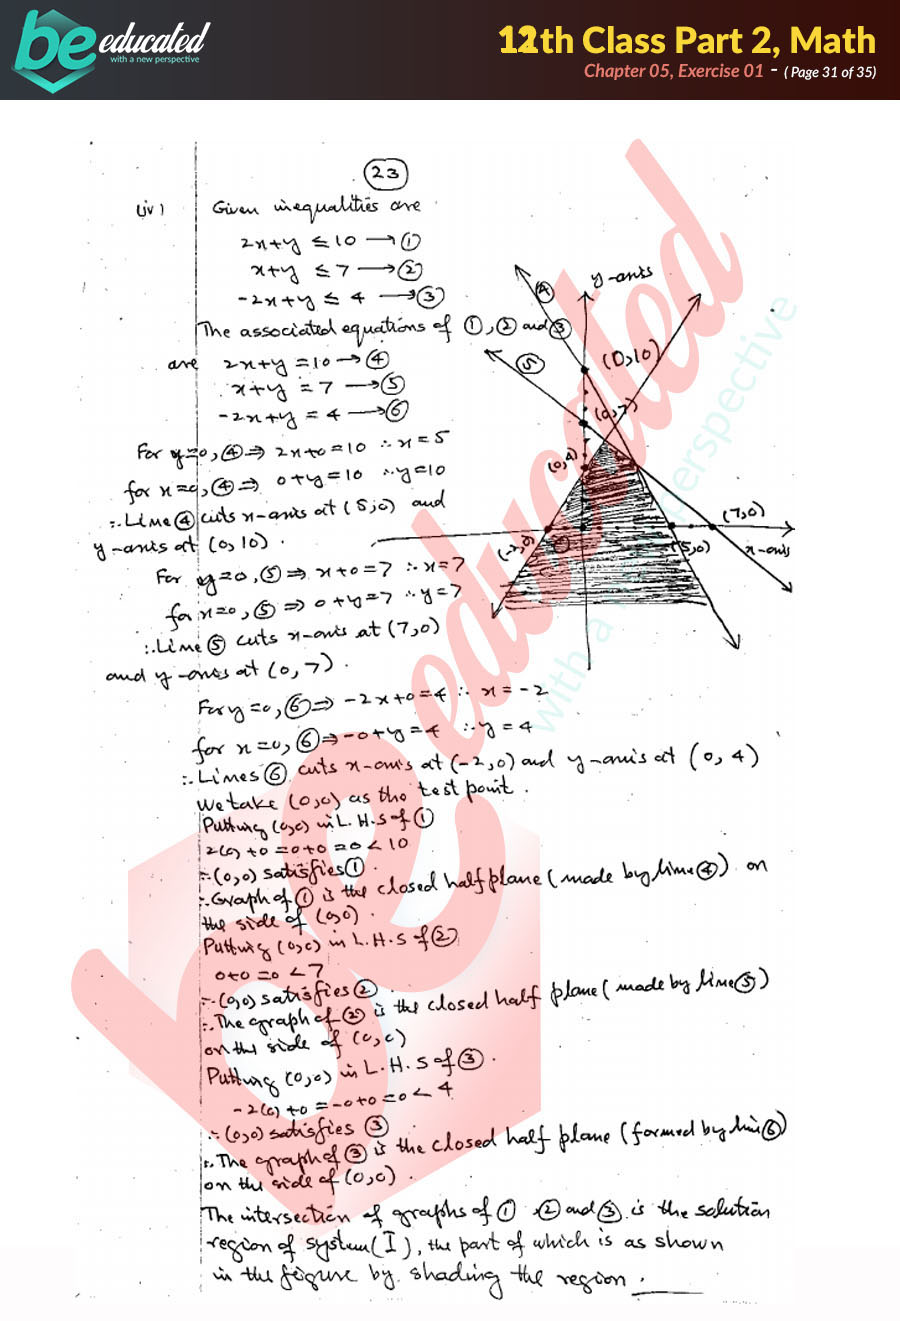 be educated
with a new perspective
12th Class Part 2, Math
Chapter 05, Exercise 01 - ( Page 31 of 35)
23
(iv) Given inequalities are
2x+y ≤ 10 → ①
x+y ≤ 7 → ②
-2x+y ≤ 4 → ③
The associated equations of ①, ② and ③
are 2x+y = 10 → ④
x+y = 7 → ⑤
-2x+y = 4 → ⑥
For y=0, ④ ⇒ 2x+0=10 ∴ x=5
for x=0, ④ ⇒ 0+y=10 ∴ y=10
∴ Line ④ cuts x-axis at (5,0) and
y-axis at (0,10).
For y=0, ⑤ ⇒ x+0=7 ∴ x=7
for x=0, ⑤ ⇒ 0+y=7 ∴ y=7
∴ Line ⑤ cuts x-axis at (7,0)
and y-axis at (0,7).
For y=0, ⑥ ⇒ -2x+0=4 ∴ x=-2
for x=0, ⑥ ⇒ -0+y=4 ∴ y=4
∴ Lines ⑥ cuts x-axis at (-2,0) and y-axis at (0,4)
We take (0,0) as the test point.
Putting (0,0) in L.H.S of ①
2(0)+0=0+0=0<10
∴ (0,0) satisfies ①.
∴ Graph of ① is the closed half plane (made by line ④) on
the side of (0,0).
Putting (0,0) in L.H.S of ②
0+0=0<7
∴ (0,0) satisfies ②
∴ The graph of ② is the closed half plane (made by line ⑤)
on the side of (0,0)
Putting (0,0) in L.H.S of ③.
-2(0)+0=-0+0=0<4
∴ (0,0) satisfies ③
∴ The graph of ③ is the closed half plane (formed by line ⑥)
on the side of (0,0).
The intersection of graphs of ①, ② and ③ is the solution
region of system (I), the part of which is as shown
in the figure by shading the region.
④
y-axis
⑤
(0,10)
(0,7)
(0,4)
(7,0)
(-2,0)
(5,0)
x-axis
be educated
with a new perspective